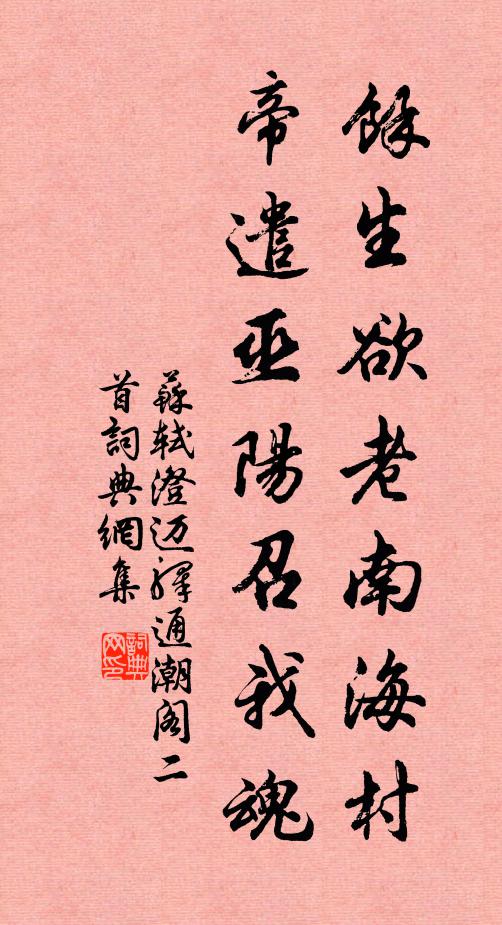 餘生欲老南海村
帝遣巫陽召我魂
蘇軾澄迈驛通潮阁二
首詞典網集
詞典网印